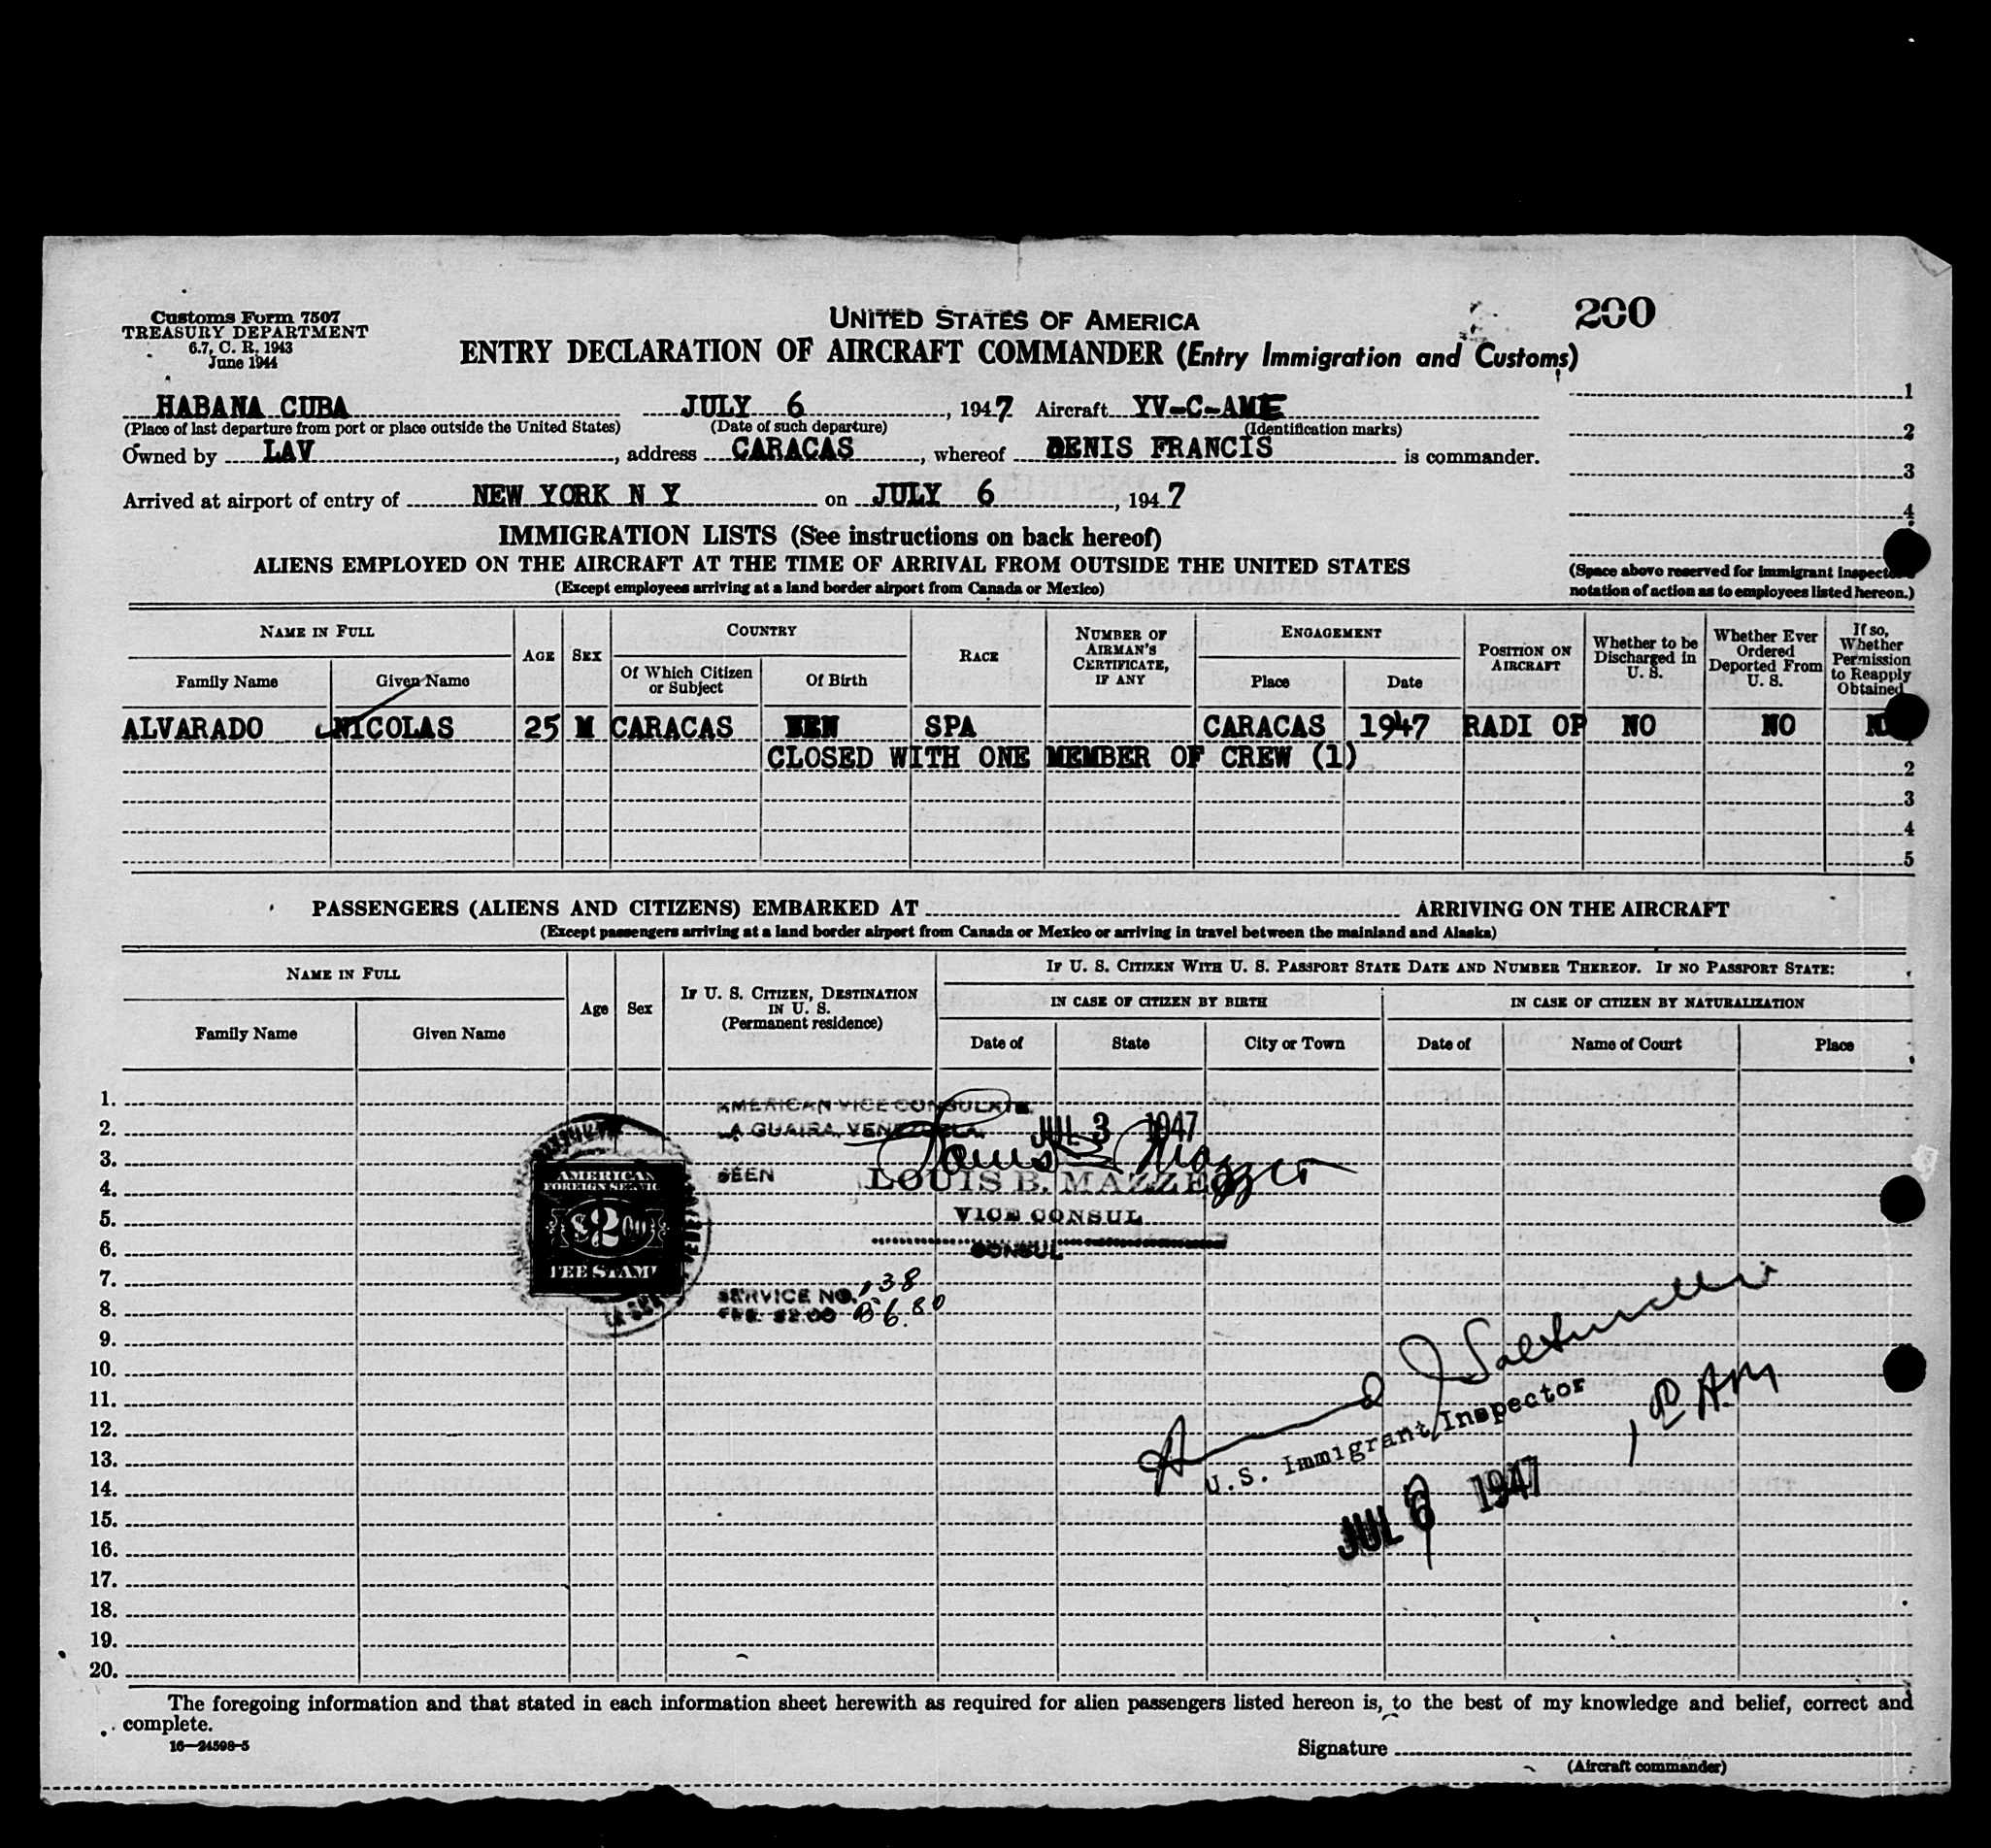 Customs Form 7507
TREASURY DEPARTMENT
6.7, C. R. 1943
June 1944
UNITED STATES OF AMERICA
200
ENTRY DECLARATION OF AIRCRAFT COMMANDER (Entry Immigration and Customs)
HABANA CUBA JULY 6, 1947 Aircraft YV-C-AME
(Place of last departure from port or place outside the United States) (Date of such departure) (Identification marks)
Owned by LAV, address CARACAS, whereof DENIS FRANCIS is commander.
Arrived at airport of entry of NEW YORK N Y on JULY 6, 1947
1
2
3
4
(Space above reserved for immigrant inspector's
notation of action as to employees listed hereon.)
IMMIGRATION LISTS (See instructions on back hereof)
ALIENS EMPLOYED ON THE AIRCRAFT AT THE TIME OF ARRIVAL FROM OUTSIDE THE UNITED STATES
(Except employees arriving at a land border airport from Canada or Mexico)
NAME IN FULL
Family Name Given Name
AGE
SEX
COUNTRY
Of Which Citizen or Subject
Of Birth
RACE
NUMBER OF AIRMAN'S CERTIFICATE, IF ANY
ENGAGEMENT
Place Date
POSITION ON AIRCRAFT
Whether to be Discharged in U. S.
Whether Ever Ordered Deported From U. S.
If so, Whether Permission to Reapply Obtained
ALVARADO NICOLAS 25 M CARACAS SPA CARACAS 1947 RADI OP NO NO NO
CLOSED WITH ONE MEMBER OF CREW (1)
2
3
4
5
PASSENGERS (ALIENS AND CITIZENS) EMBARKED AT ARRIVING ON THE AIRCRAFT
(Except passengers arriving at a land border airport from Canada or Mexico or arriving in travel between the mainland and Alaska)
NAME IN FULL
Family Name Given Name
Age
Sex
IF U. S. CITIZEN, DESTINATION IN U. S.
(Permanent residence)
IF U. S. CITIZEN WITH U. S. PASSPORT STATE DATE AND NUMBER THEREOF. IF NO PASSPORT STATE:
IN CASE OF CITIZEN BY BIRTH
IN CASE OF CITIZEN BY NATURALIZATION
Date of State City or Town Date of Name of Court Place
1.
2.
3.
4.
5.
6.
7.
8.
9.
10.
11.
12.
13.
14.
15.
16.
17.
18.
19.
20.
AMERICAN VICE CONSULATE
LA GUAIRA, VENEZUELA
JUL 3 1947
SEEN
Louis B. Mazzeo
LOUIS B. MAZZEO
VICE CONSUL
CONSUL
AMERICAN
FOREIGN SERVICE
$2.00
FEE STAMP
SERVICE NO. 138
FEE. $2.00 B 6.80
U.S. Immigrant Inspector
JUL 6 1947
The foregoing information and that stated in each information sheet herewith as required for alien passengers listed hereon is, to the best of my knowledge and belief, correct and
complete.
16—24598-5
Signature
(Aircraft commander)